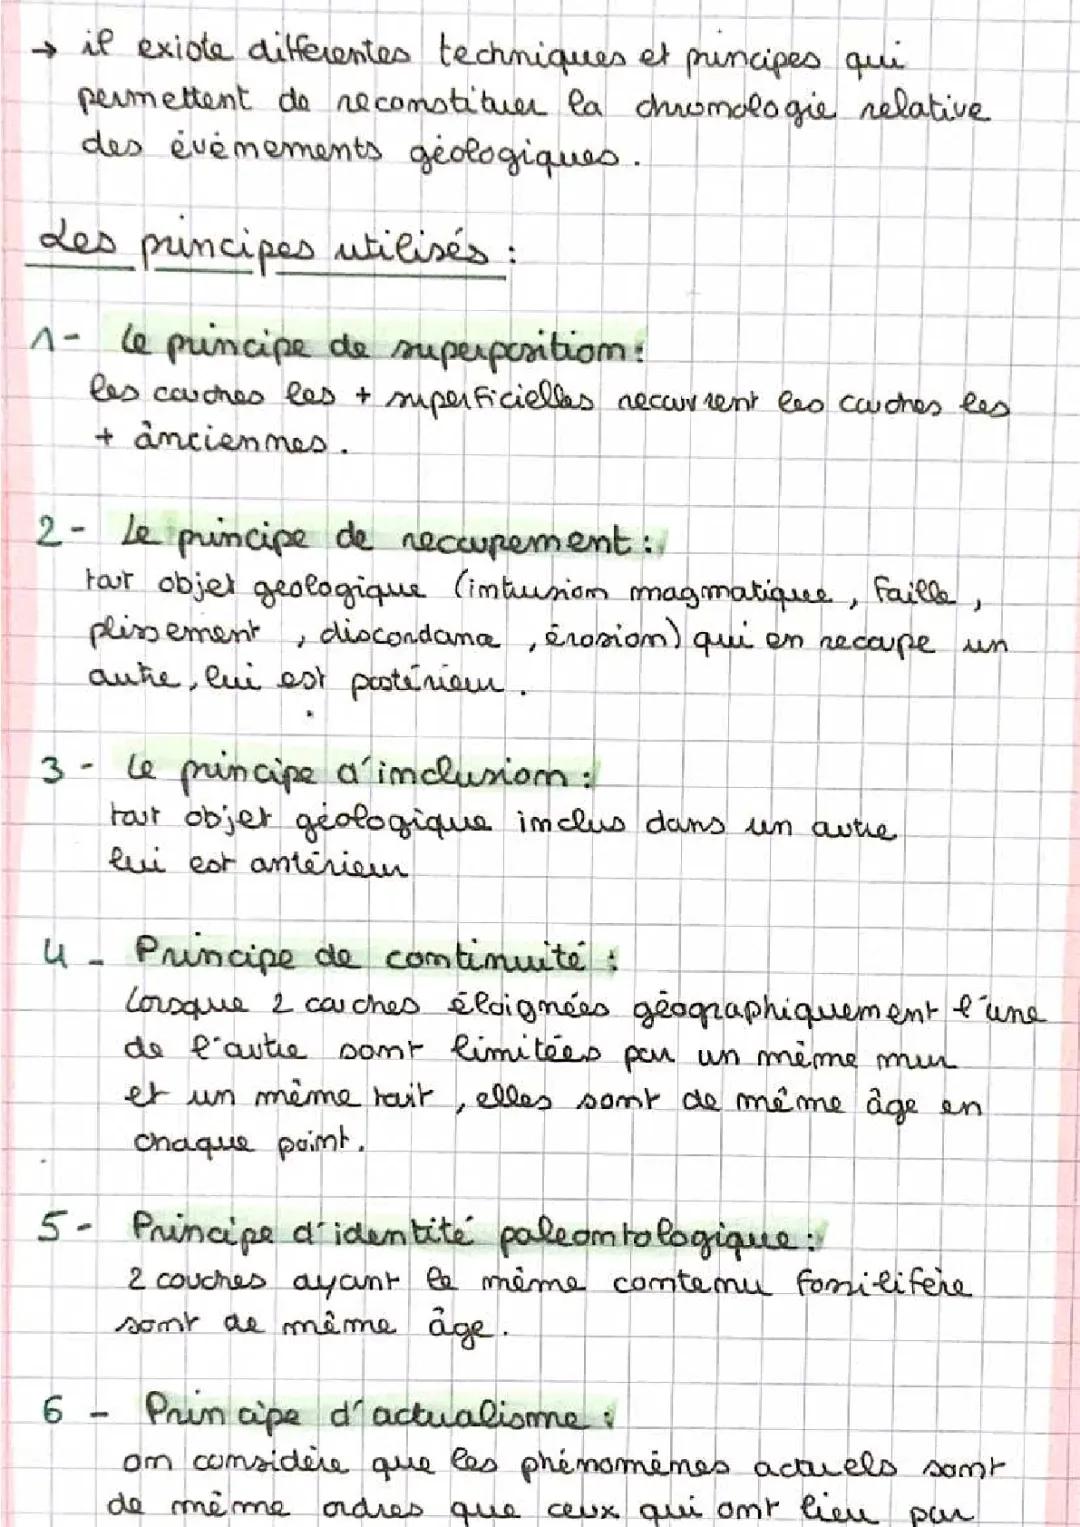 → il existe différentes techniques et principes qui
permettent de reconstituer la chronologie relative
des évènements géologiques.
Les principes utilisés :
1- Le principe de superposition :
les couches les + superficielles recouvrent les couches les
+ anciennes.
2- Le principe de recoupement :
tout objet geologique (intrusion magmatique, faille,
plissement, discordance, érosion) qui en recoupe un
autre, lui est postérieur.
3- Le principe d'inclusion :
tout objet géologique inclus dans un autre
lui est antérieur
4- Principe de continuité :
Lorsque 2 couches éloignées géographiquement l'une
de l'autre sont limitées par un même mur
et un même toit, elles sont de même âge en
chaque point.
5- Principe d'identité paleontologique :
2 couches ayant le même contenu fossilifère
sont de même âge.
6- Principe d'actualisme :
on considère que les phénomènes actuels sont
de même ordres que ceux qui ont lieu par